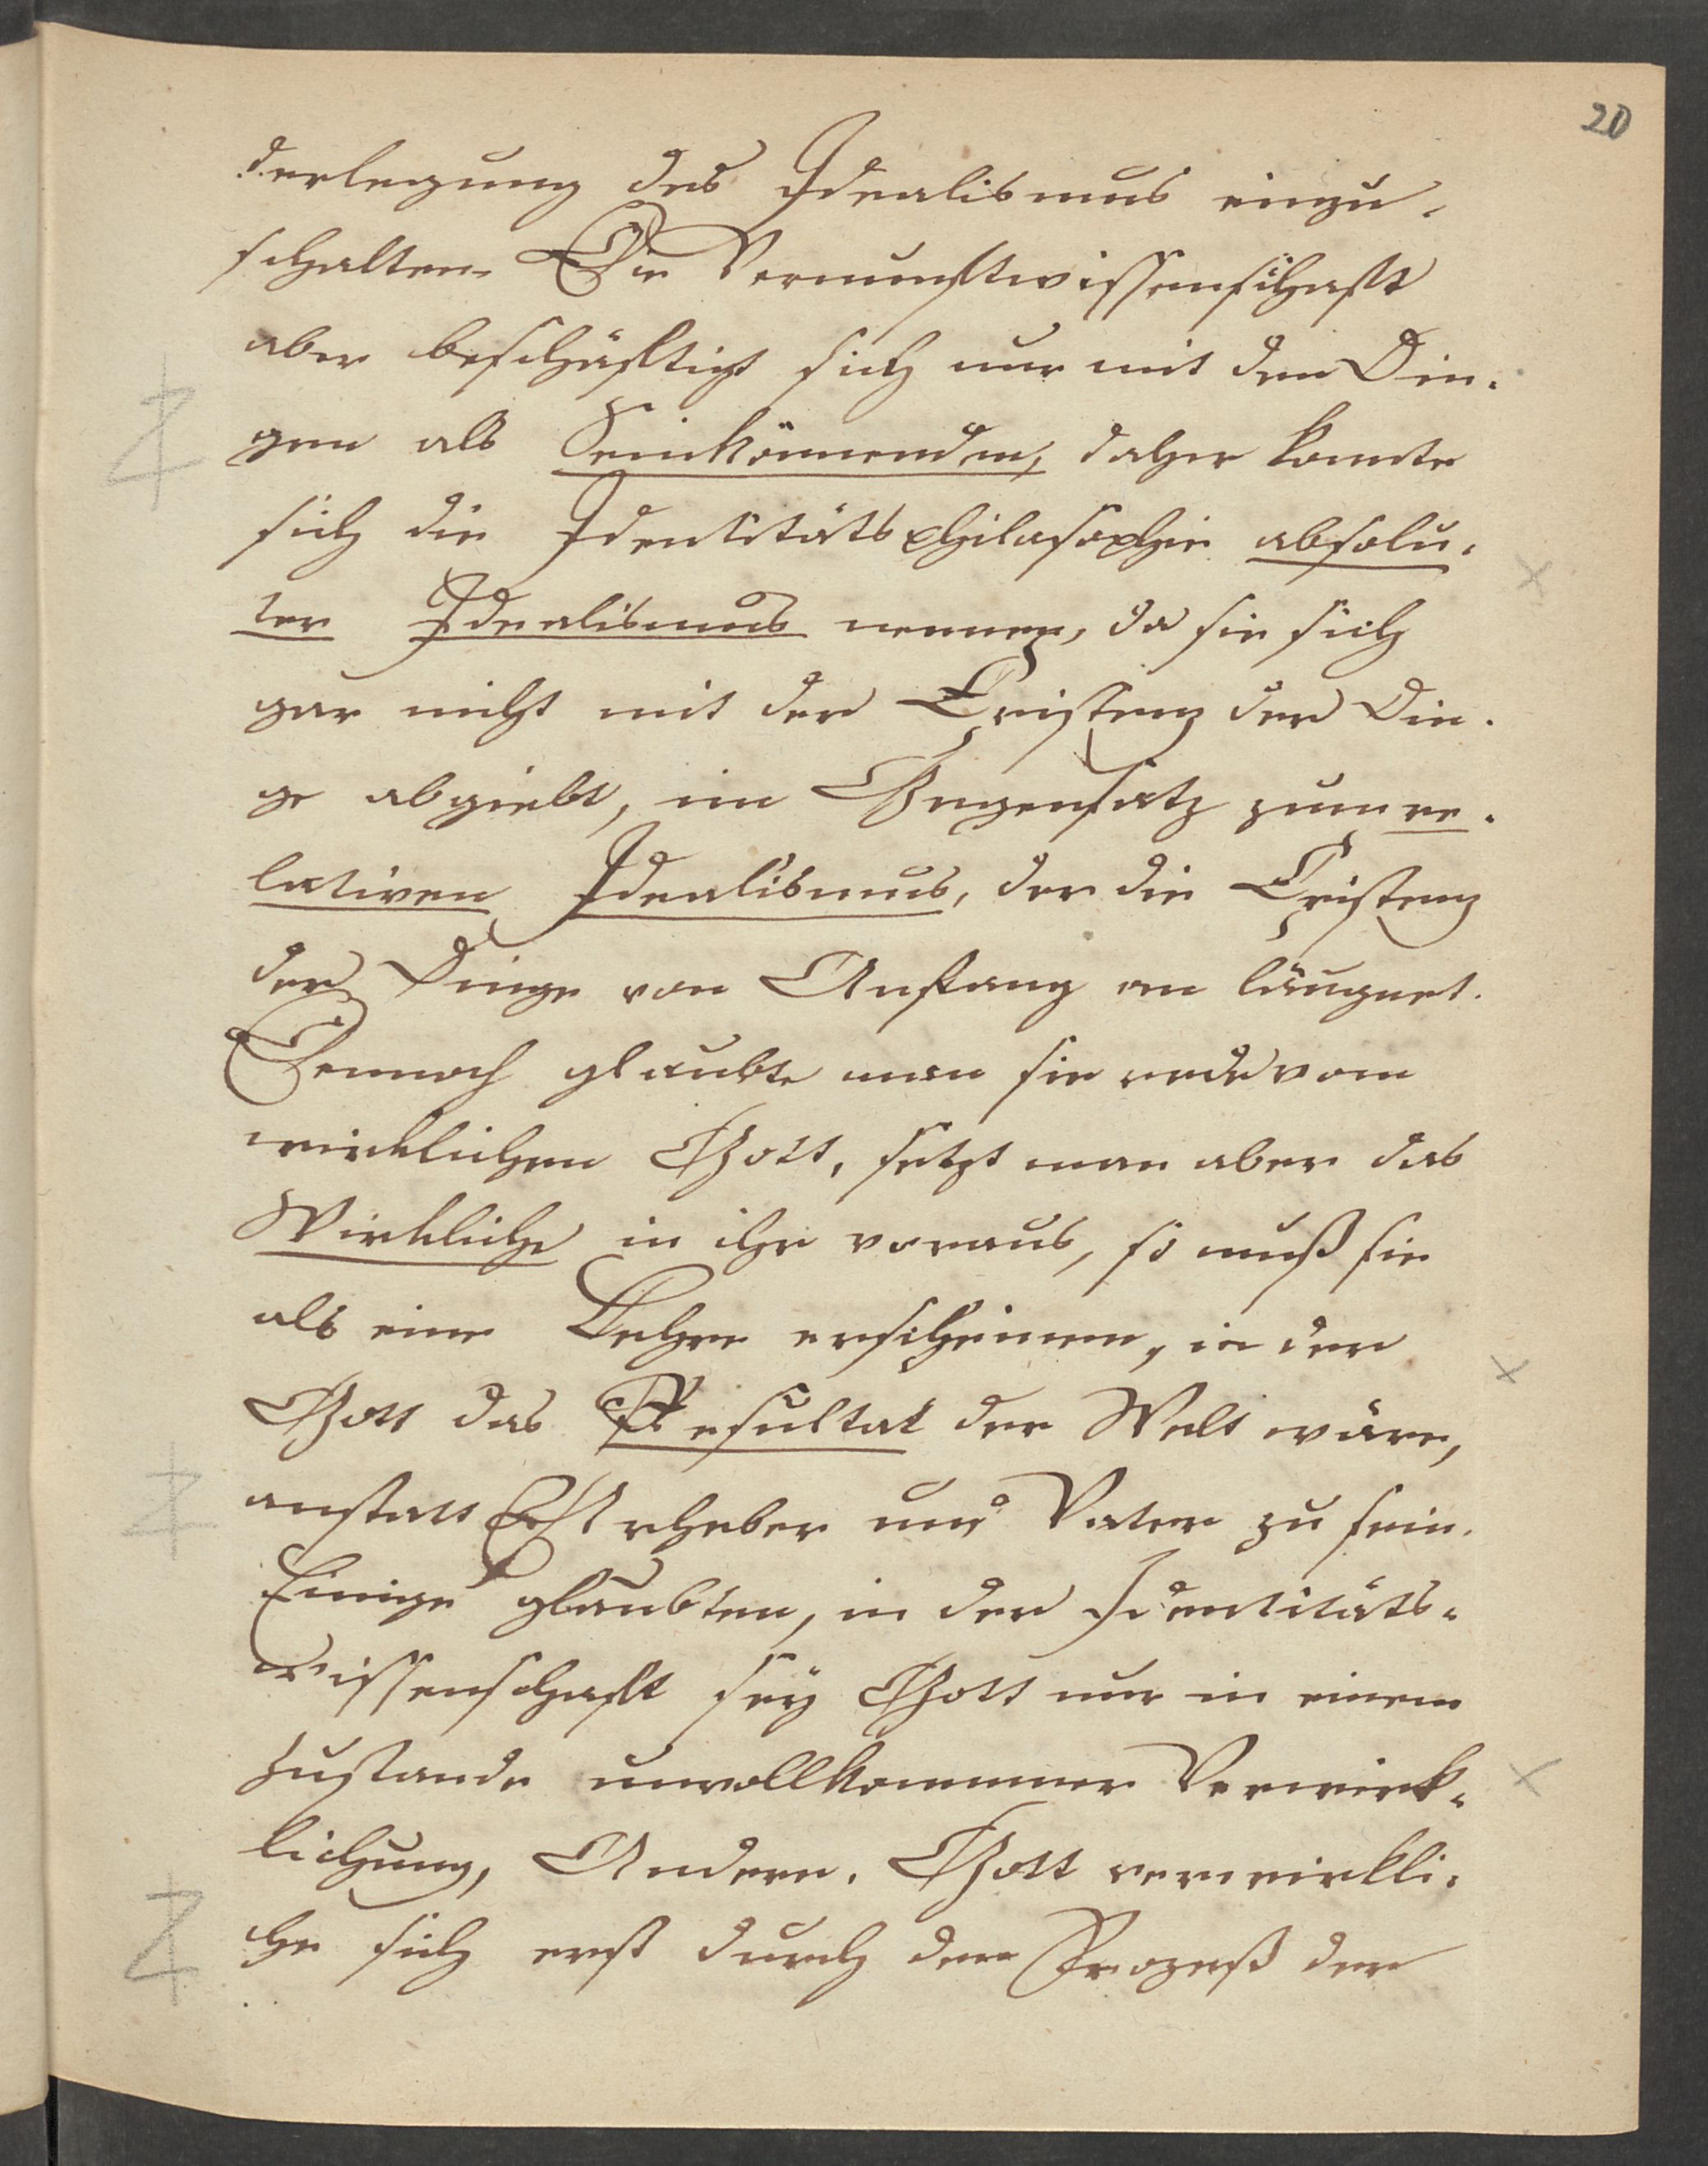 20
derlegung des Idealismus einzu-
schalten. Die Vernunftwissenschaft
aber beschäftigt sich nur mit den Din-
gen als Seinkönnenden, daher konnte
sich die Identitätsphilosophie absolu-
ter Idealismus nennen, da sie sich
gar nicht mit der Existenz der Din-
ge abgiebt, im Gegensatz zum re-
lativen Idealismus, der die Existenz
der Dinge von Anfang an läugnet.
Dennoch glaubte man sie rede vom
wirklichen Gott, setzt man aber das
Wirkliche in ihr voraus, so muß sie
als eine Lehre erscheinen, in der
Gott das Resultat der Welt wäre,
anstatt Urheber und Vater zu sein.
Einige glaubten, in der Identitäts-
wissenschaft sey Gott nur in einem
Zustande unvollkommner Verwirk-
lichung, Andere, Gott verwirkli-
che sich erst durch den Prozeß der